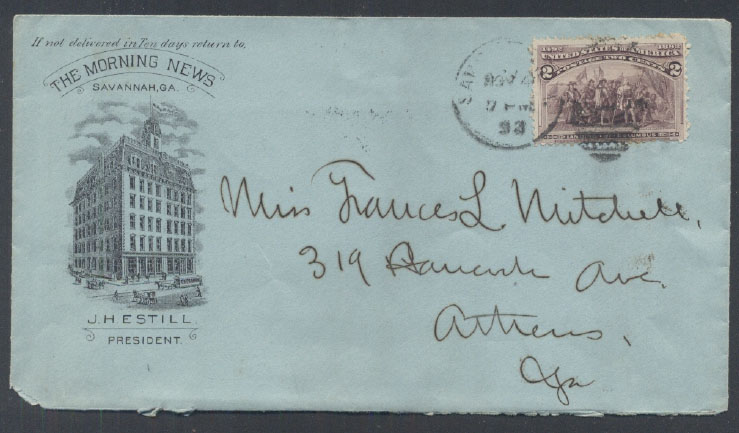 If not delivered in Ten days return to,
THE MORNING NEWS
SAVANNAH, GA.
J. H ESTILL
PRESIDENT.
SAV
NOV
7 PM
93
1492 1892
UNITED STATES OF AMERICA
POSTAGE TWO CENTS
2 2
COLUMBUS
Miss Frances L. Mitchell,
319 Hancock Ave.
Athens,
Ga